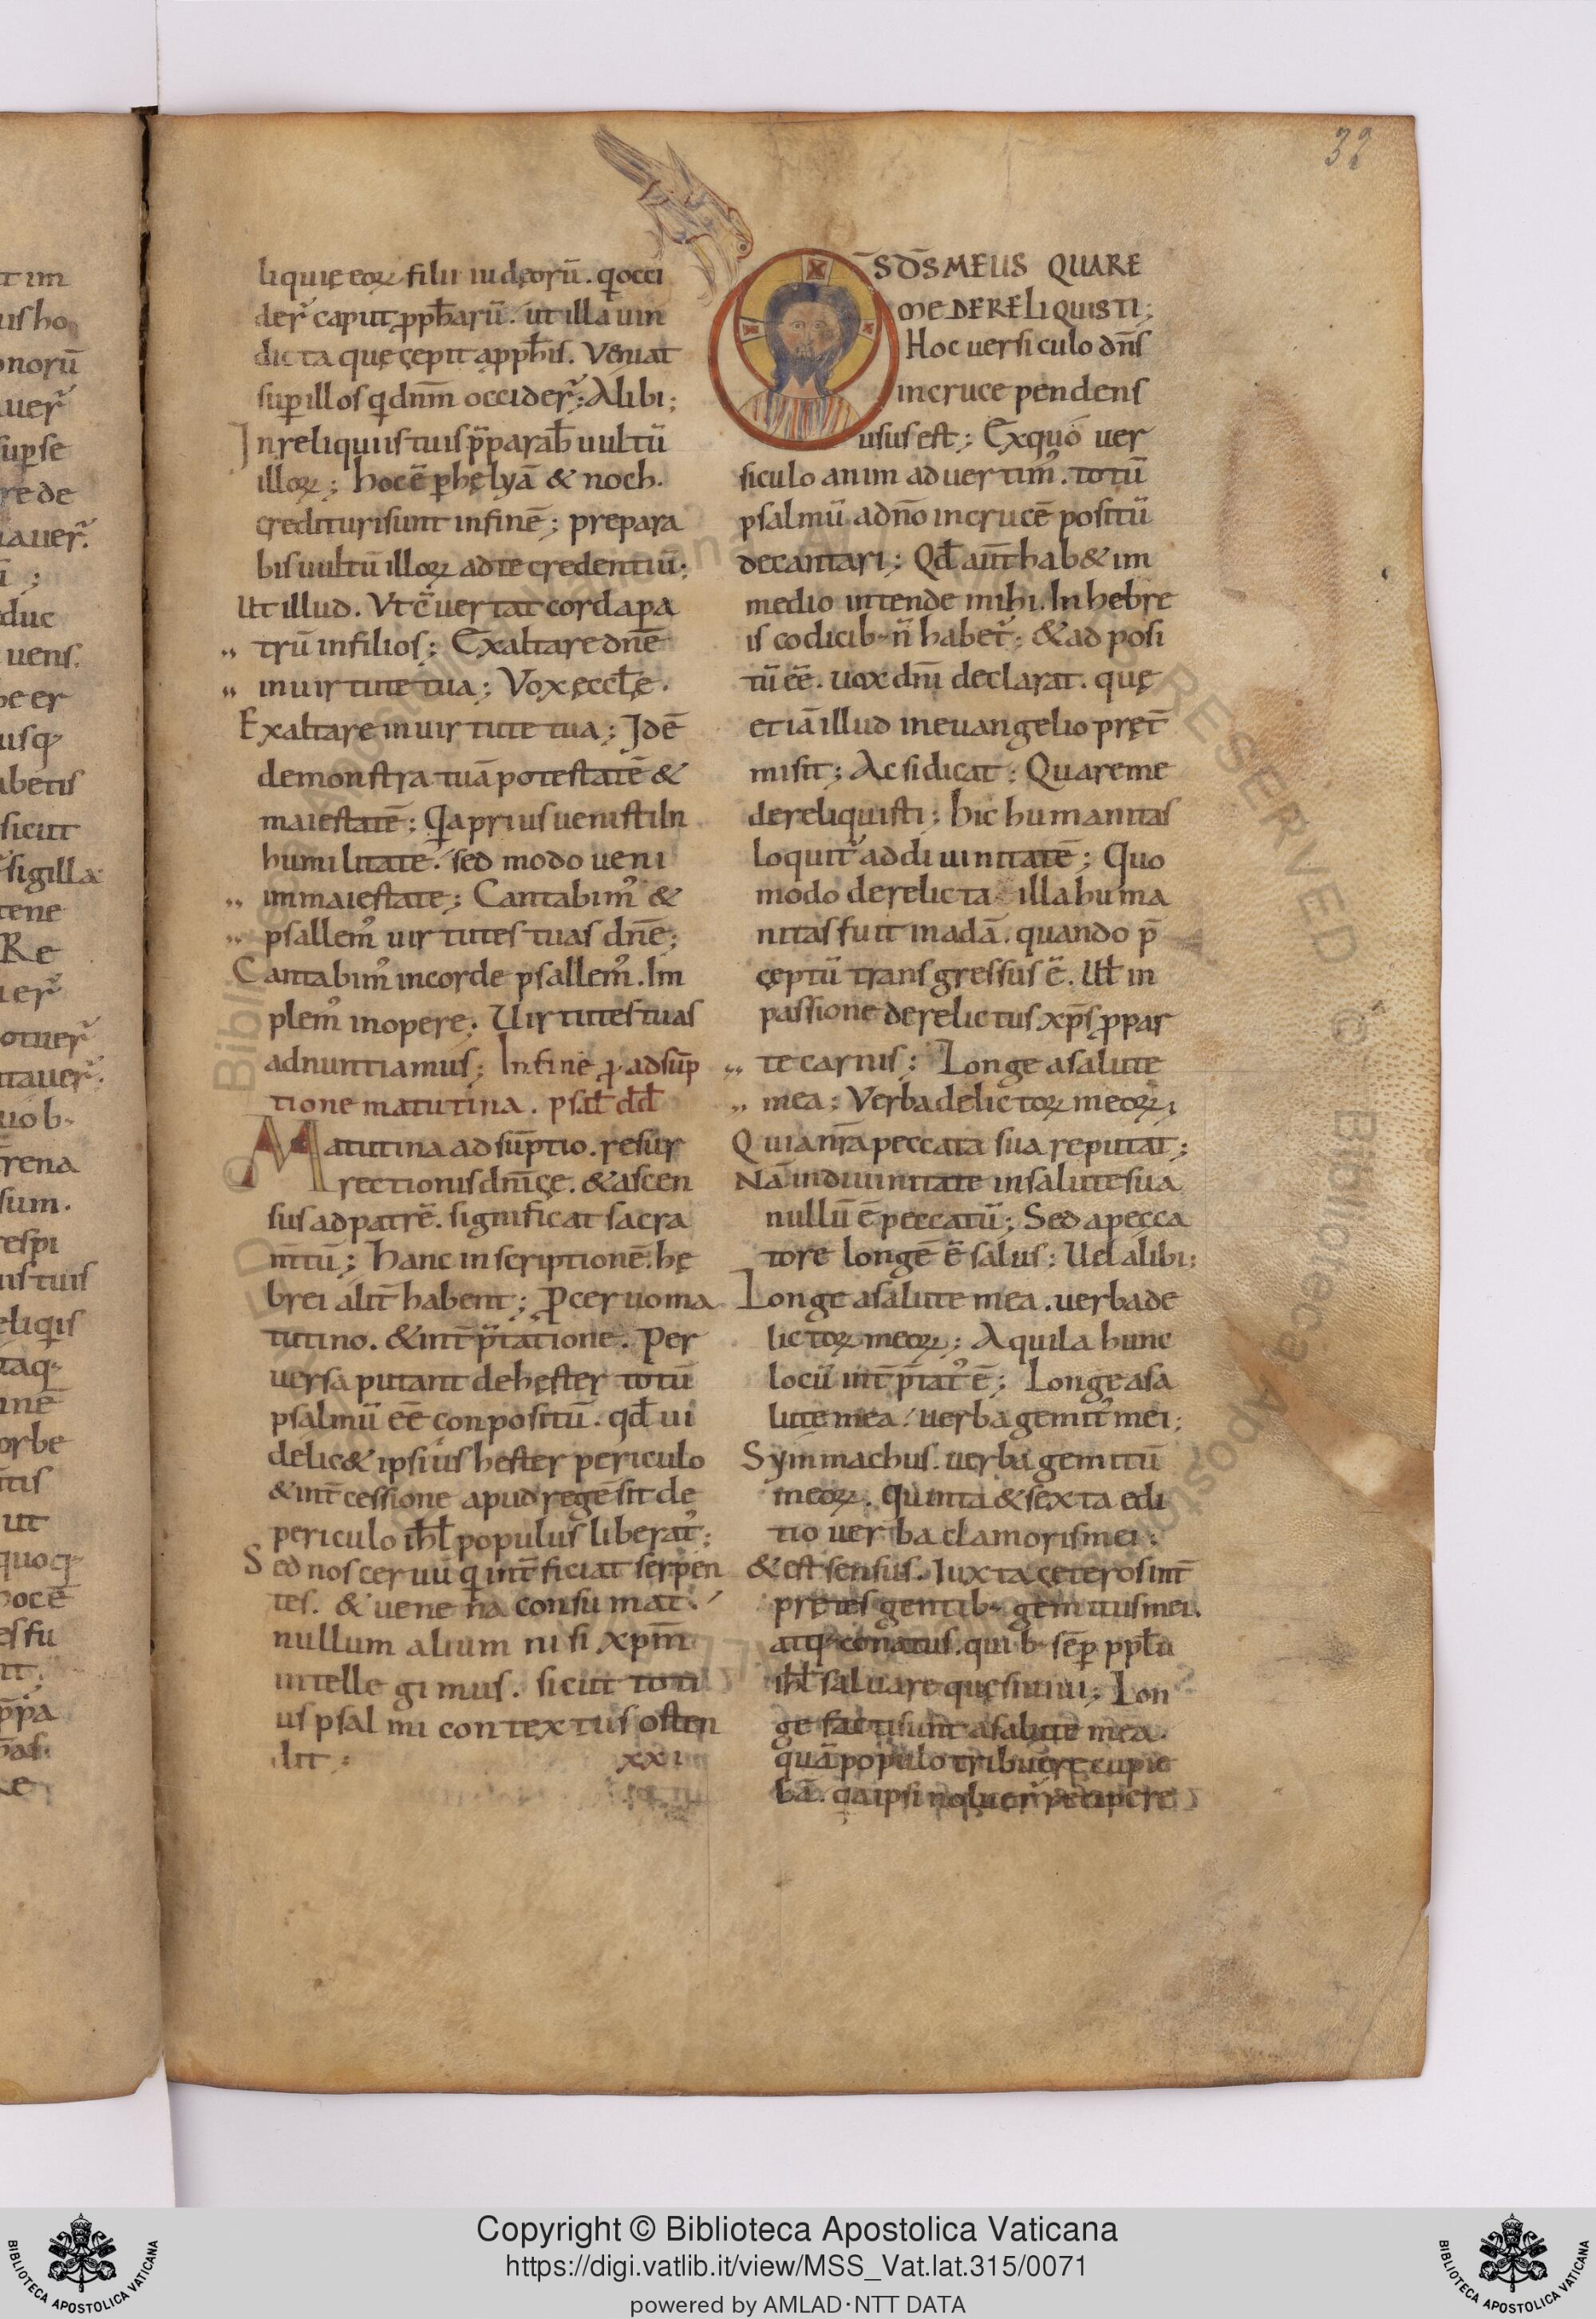 32
liquię eoꝝ filii iudęorū. q̇ occi
der̄ caput ꝓph̄arū. ut illa uin
dicta quę cępit a ꝓph̄is. Veniat
sup illos qi dn̄m occider̄; Alibi;
In reliquiis tuis p̄parab̄ uultū
illoꝝ; hoc ē p helyā & noch.
credituri sunt in finē; prepara
bis uultū illoꝝ ad te credentiū;
Ut illud. Vt c̄uertat corda pa
trū in filios; Exaltare dn̄e
in uirtute tua; Vox ęccl̄ę.
Exaltare in uirtute tua; Idē
demonstra tuā potestatē &
maiestatē; Q̇a prius uenisti In
humilitate. sed modo ueni
im maiestate; Cantabim᷒ &
psallem᷒ uirtutes tuas dn̄e;
Cantabim᷒ in corde psallem᷒. Im
plem᷒ in opere; Uirtutes tuas
adnuntiamus; In fine ꝓ adsūp
tione matutina. psal̄ dd̄
Matutina adsūptio. resur
rectionis dn̄icę. & ascen
sus ad patrē. significat sacra
m̄tū; Hanc inscriptionē. hę
brei alit̄ habent; Ꝓ ceruo ma
tutino. & int̄p̄tatione. Per
uersa putant de hęster totū
psalmū eē conpositū. qd̄ ui
delic& ipsius hester periculo
& int̄cessione apud regē sit de
periculo ihl̄ populus liberat᷒;
Sed nos ceruū qi int̄ficiat serpen
tes. & uenena consumat.
nullum alium nisi xp̄m
intellegimus. sicut toti
us psalmi contextus osten
dit; xxi
S D̄S MEUS QUARE
ME DERELIQUISTI;
Hoc uersiculo dn̄s
in cruce pendens
usus est; Ex quo uer
siculo animaduertim᷒. totū
psalmū a dn̄o in crucē positū
decantari; Qd̄ aut̄ hab& im
medio intende mihi. In hebre
is codicib; n̄ habet᷒; & adposi
tū eē. uox dn̄i declarat. quę
etiā illud in euangelio pręt̄
misit; Ac si dicat; Quare me
dereliquisti; hic humanitas
loquit᷒ ad diuinitatē; Quo
modo derelicta illa huma
nitas fuit in adā. quando p̄
ceptū transgressus ē. Ul̄ in
passione derelictus xp̄s ꝓ par
te carnis; Longe a salute
mea; Verba delictoꝝ meoꝝ;
Quia nr̄a peccata sua reputat;
Nā in diuinitate in salute sua
nullū ē peccatū; Sed a pecca
tore longē ē salus; Uel alibi;
Longe a salute mea. uerba de
lictoꝝ meoꝝ; Aquila hunc
locū int̄p̄tat᷒ ē; Longe a sa
lute mea. uerba gemit᷒ mei;
Symmachus. uerba gemitū
meoꝝ. Quinta & sexta edi
tio uerba clamoris mei;
& est sensus. Iuxta cęteros int̄
pretes gentib; gemitus mei.
atq; conatus. quib; sēp ppl̄ū
ihl̄ saluare quęsiuiui; Lon
ge facti sunt a salute mea.
quā populo tribuere cupie
bā. q̇a ipsi noluer̄ recipere
Copyright © Biblioteca Apostolica Vaticana
https://digi.vatlib.it/view/MSS_Vat.lat.315/0071
powered by AMLAD·NTT DATA
BIBLIOTECA APOSTOLICA VATICANA
BIBLIOTECA APOSTOLICA VATICANA